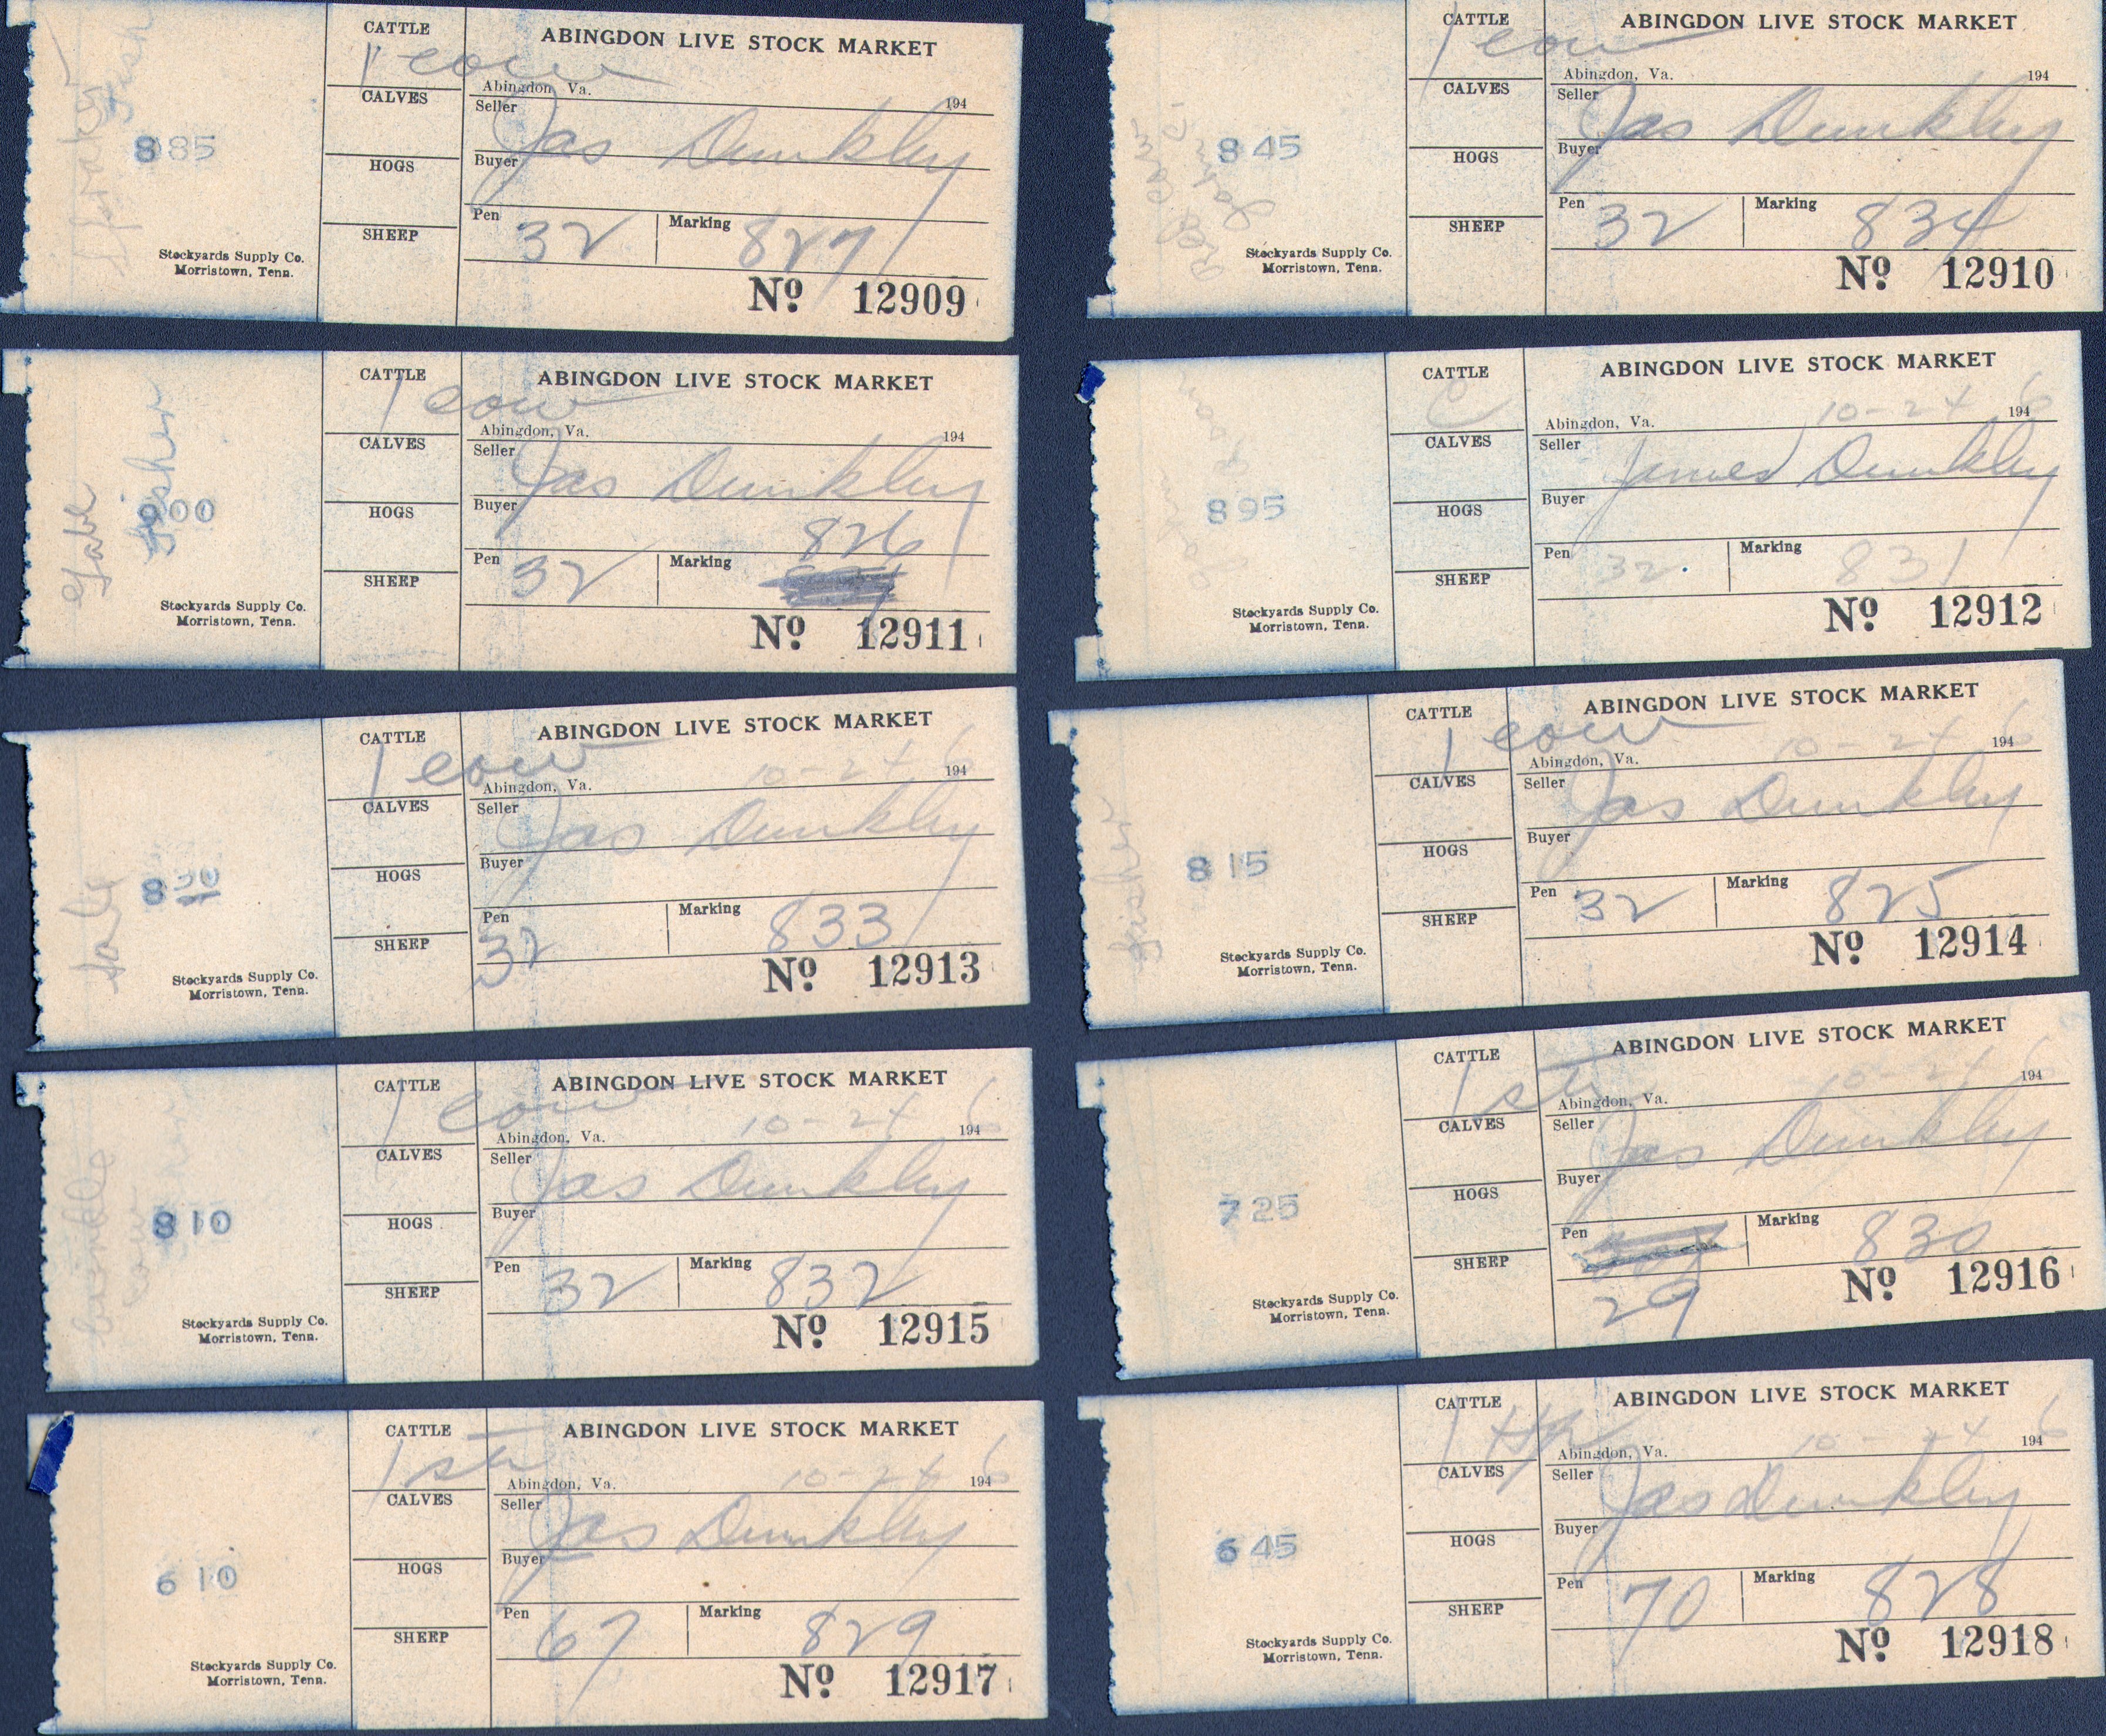 CATTLE
1 cow
CALVES
HOGS
SHEEP
885
Stockyards Supply Co.
Morristown, Tenn.
ABINGDON LIVE STOCK MARKET
Abingdon, Va. 194
Seller Jas Dunkley
Buyer
Pen 32 Marking 827
Nº 12909
CATTLE
1 cow
CALVES
HOGS
SHEEP
845
Stockyards Supply Co.
Morristown, Tenn.
ABINGDON LIVE STOCK MARKET
Abingdon, Va. 194
Seller Jas Dunkley
Buyer
Pen 32 Marking 834
Nº 12910
CATTLE
1 cow
CALVES
HOGS
SHEEP
Fisher
900
Stockyards Supply Co.
Morristown, Tenn.
ABINGDON LIVE STOCK MARKET
Abingdon, Va. 194
Seller Jas Dunkley
Buyer
826
Pen 32 Marking
Nº 12911
CATTLE
C
CALVES
HOGS
SHEEP
895
Stockyards Supply Co.
Morristown, Tenn.
ABINGDON LIVE STOCK MARKET
Abingdon, Va. 10-24 1946
Seller James Dunkley
Buyer
Pen 32 Marking 831
Nº 12912
CATTLE
1 cow
CALVES
HOGS
SHEEP
8
Stockyards Supply Co.
Morristown, Tenn.
ABINGDON LIVE STOCK MARKET
Abingdon, Va. 10-24 1946
Seller Jas Dunkley
Buyer
Pen 32 Marking 833
Nº 12913
CATTLE
1 cow
CALVES
HOGS
SHEEP
Fisher
815
Stockyards Supply Co.
Morristown, Tenn.
ABINGDON LIVE STOCK MARKET
Abingdon, Va. 10-24 1946
Seller Jas Dunkley
Buyer
Pen 32 Marking 825
Nº 12914
CATTLE
1 cow
CALVES
HOGS
SHEEP
810
Stockyards Supply Co.
Morristown, Tenn.
ABINGDON LIVE STOCK MARKET
Abingdon, Va. 10-24 1946
Seller Jas Dunkley
Buyer
Pen 32 Marking 832
Nº 12915
CATTLE
1 str
CALVES
HOGS
SHEEP
725
Stockyards Supply Co.
Morristown, Tenn.
ABINGDON LIVE STOCK MARKET
Abingdon, Va. 10-24 1946
Seller Jas Dunkley
Buyer
Pen Marking 830
29
Nº 12916
CATTLE
1 str
CALVES
HOGS
SHEEP
610
Stockyards Supply Co.
Morristown, Tenn.
ABINGDON LIVE STOCK MARKET
Abingdon, Va. 10-24 1946
Seller Jas Dunkley
Buyer
Pen 67 Marking 829
Nº 12917
CATTLE
1 Hfr
CALVES
HOGS
SHEEP
645
Stockyards Supply Co.
Morristown, Tenn.
ABINGDON LIVE STOCK MARKET
Abingdon, Va. 10-24 1946
Seller Jas Dunkley
Buyer
Pen 70 Marking 828
Nº 12918